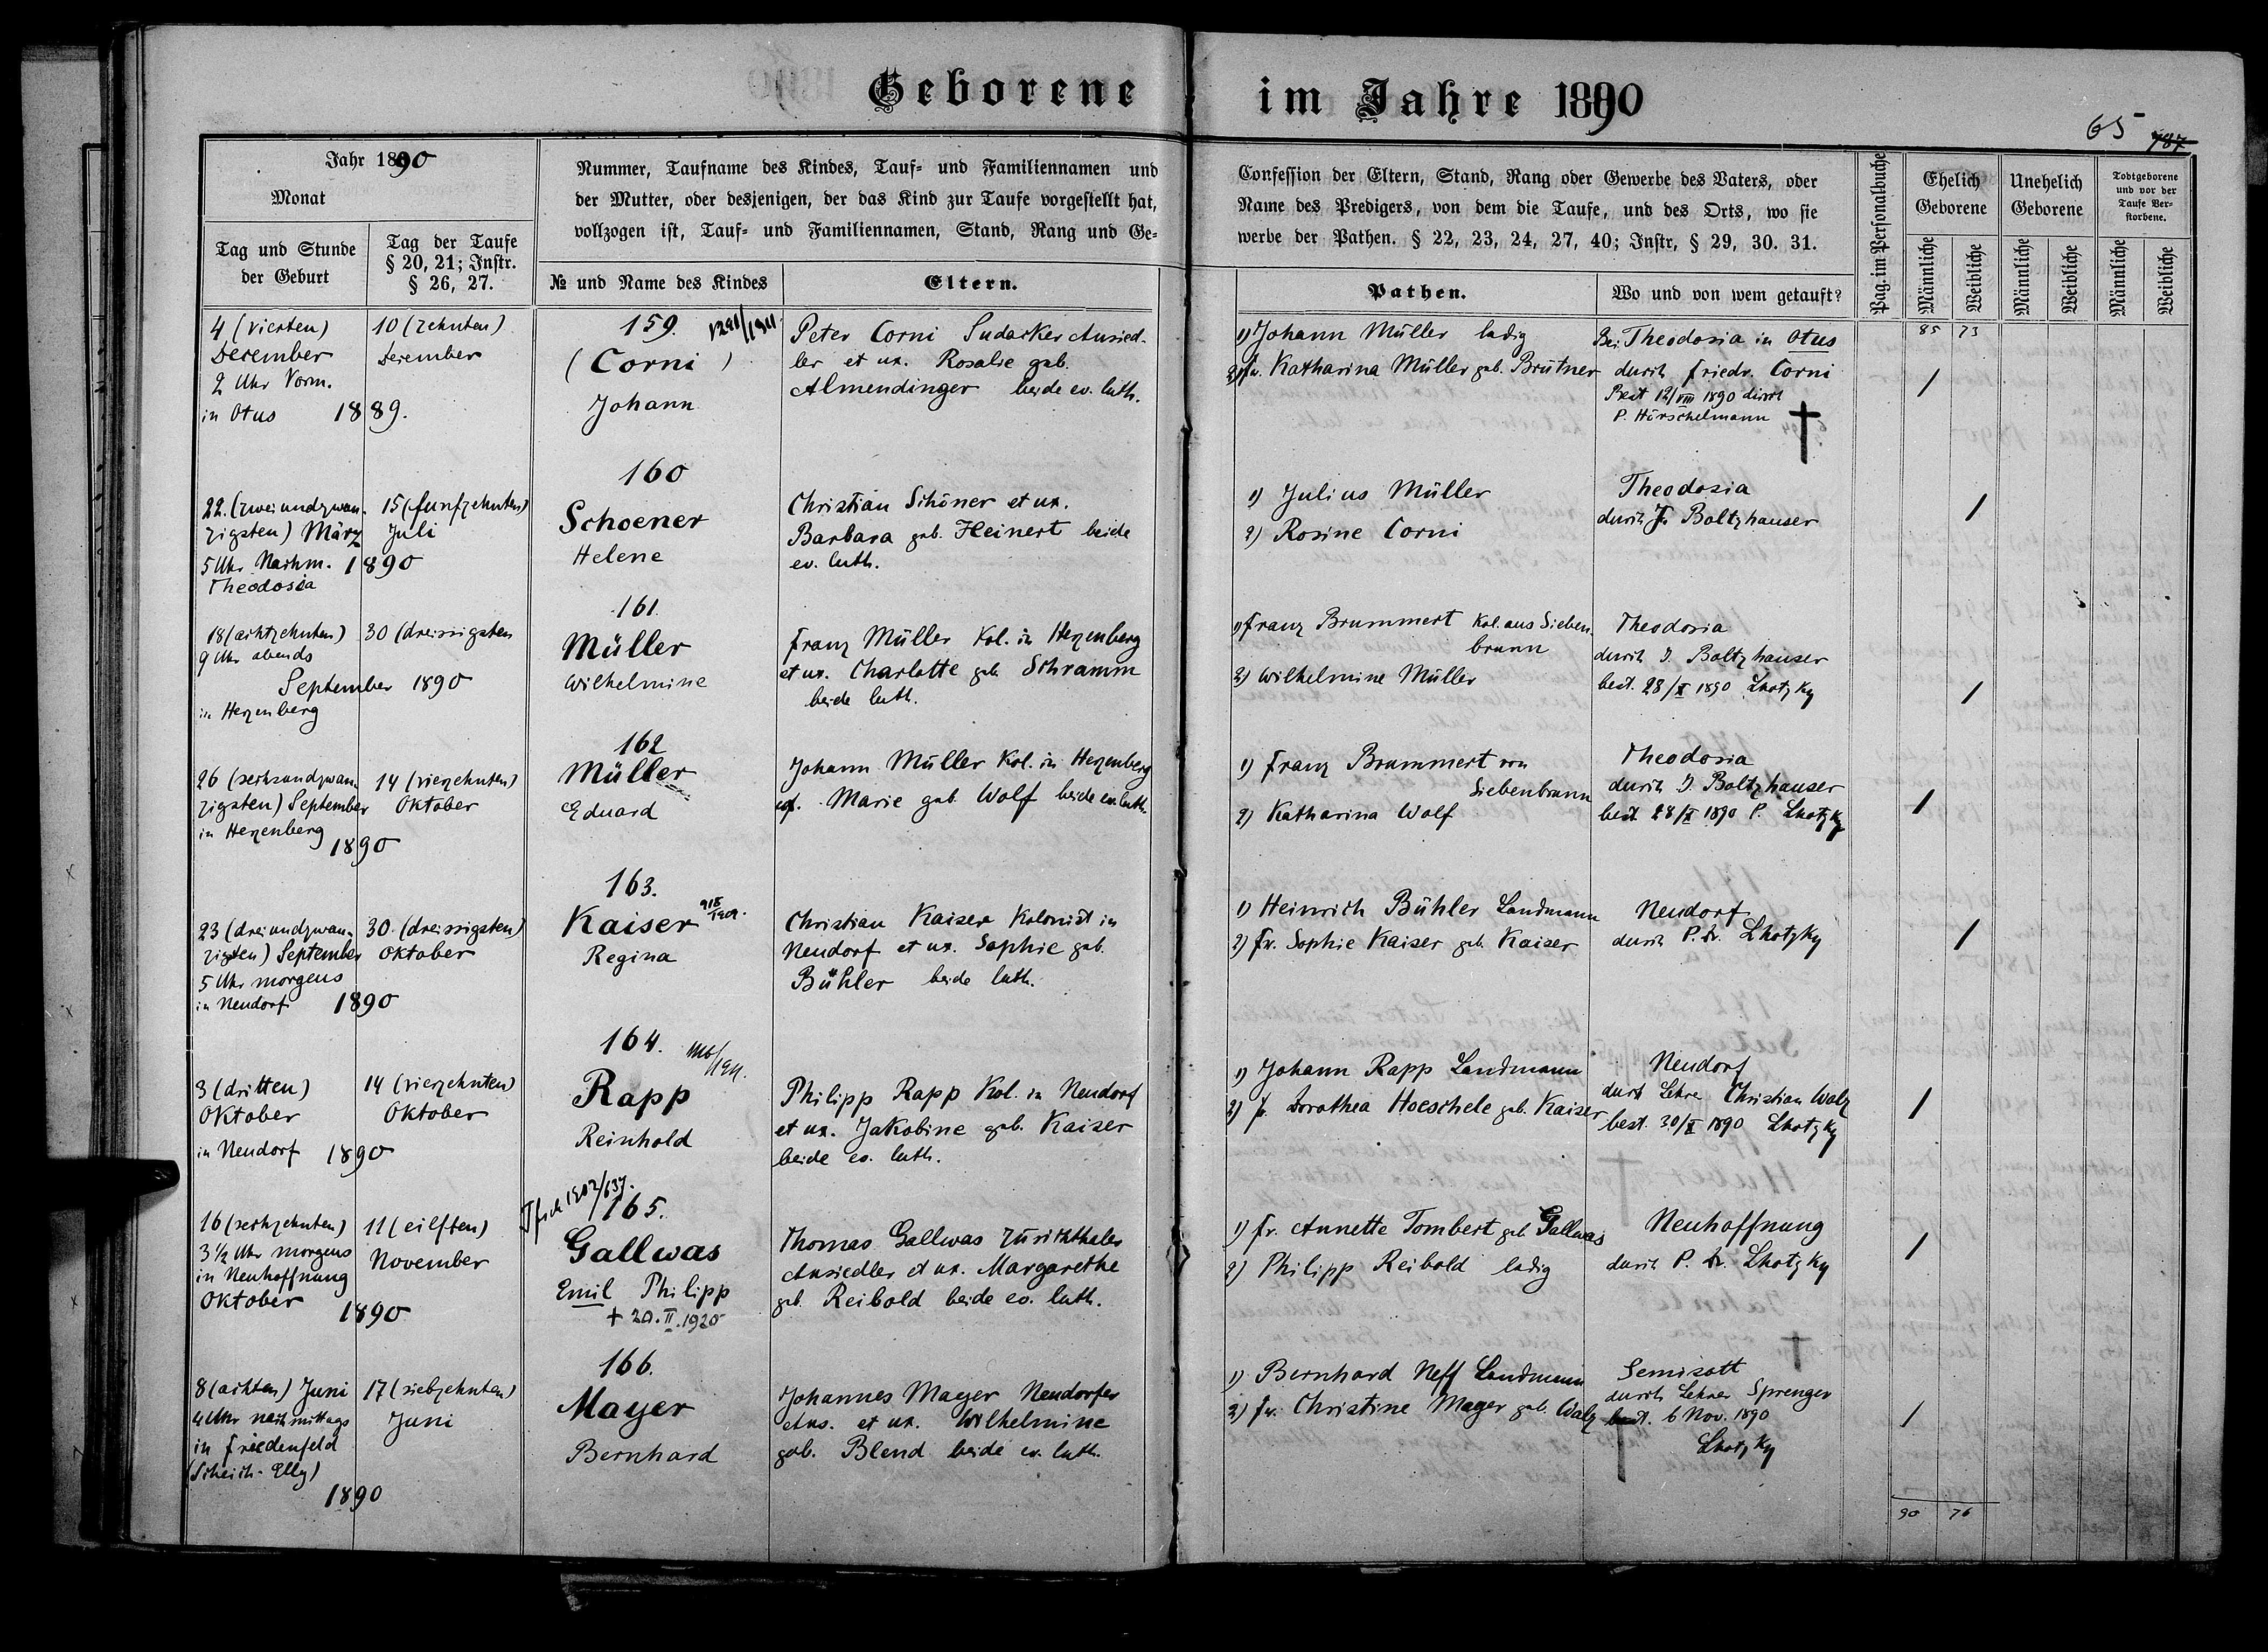 Geborene im Jahre 1890
65 787
Jahr 1890
Monat
Tag und Stunde
der Geburt
Tag der Taufe
§ 20, 21; Instr.
§ 26, 27.
Nummer, Taufname des Kindes, Tauf- und Familiennamen und
der Mutter, oder desjenigen, der das Kind zur Taufe vorgestellt hat,
vollzogen ist, Tauf- und Familiennamen, Stand, Rang und Ge-
№ und Name des Kindes
Eltern.
Confession der Eltern, Stand, Rang oder Gewerbe des Vaters, oder
Name des Predigers, von dem die Taufe, und des Orts, wo sie
werbe der Pathen. § 22, 23, 24, 27, 40; Instr, § 29, 30. 31.
Pathen.
Wo und von wem getauft?
Pag. im Personalbuche
Ehelich
Geborene
Unehelich
Geborene
Todtgeborene
und vor der
Taufe Ver-
storbene.
Männliche
Weibliche
Männliche
Weibliche
Männliche
Weibliche
4 (vierten)
December
2 Uhr Vorm.
in Otus 1889.
10 (zehnten)
December
159.
(Corni)
Johann
Peter Corni Sudacker Ansied-
ler et ux. Rosalie geb.
Almendinger beide ev. luth.
1) Johann Müller ledig
2) Fr. Katharina Müller geb. Brütner
Bei Theodosia in Otus
durch Friedr. Corni
Best 12/VIII 1890 durch
P. Hörschelmann †
85 73
/
22. (zweiundzwan-
zigsten) März
5 Uhr Nachm. 1890
Theodosia
15 (funfzehnten)
Juli
160
Schoener
Helene
Christian Schöner et ux.
Barbara geb. Heinert beide
ev. luth.
1) Julius Müller
2) Rosine Corni
Theodosia
durch J. Boltzhauser
/
18 (achtzehnten)
9 Uhr abends
September 1890
in Herzenberg
30 (dreissigsten
161.
Müller
Wilhelmine
Franz Müller Kol. in Herzenberg
et ux. Charlotte geb. Schramm
beide luth.
1) Franz Brummert Kol. aus Sieben-
brunn
2) Wilhelmine Müller
Theodosia
durch J. Boltzhauser
best. 28/X 1890 Lhotzky
/
26 (sechsundzwan-
zigsten) September
in Herzenberg
1890
14 (vierzehnten)
Oktober
162
Müller
Eduard
Johann Müller Kol. in Herzenberg
Marie geb. Wolf beide ev. luth.
1) Franz Brummert von
Siebenbrunn
2) Katharina Wolf
Theodosia
durch J. Boltzhauser
best 28/X 1890 P. Lhotzky
/
23 (dreiundzwan-
zigsten) September
5 Uhr morgens
in Neudorf 1890
30. (dreissigsten)
Oktober
163.
Kaiser
Regina
Christian Kaiser Kolonist in
Neudorf et ux. Sophie geb.
Bühler beide luth.
1) Heinrich Bühler Landmann
2) Fr. Sophie Kaiser geb. Kaiser
Neudorf
durch P. Dr. Lhotzky
/
3 (dritten)
Oktober
in Neudorf 1890
14 (vierzehnten)
Oktober
164.
Rapp
Reinhold
Philipp Rapp Kol. in Neudorf
et ux. Jakobine geb. Kaiser
beide ev. luth.
1) Johann Rapp Landmann
2) Fr. Dorothea Hoeschele geb. Kaiser
Neudorf
durch Lehrer Christian Walz
best. 30/X 1890 Lhotzky
/
16 (sechzehnten)
3 1/2 Uhr morgens
in Neuhoffnung
Oktober 1890
11 (eilften)
November
165.
Gallwas
Emil Philipp
Thomas Gallwas Zürichthaler
Ansiedler et ux. Margarethe
geb. Reibold beide ev. luth.
+ 20.II.1920
1) Fr. Annette Tombert geb Gallwas
2) Philipp Reibold ledig
Neuhoffnung
durch P. Dr. Lhotzky
/
8 (achten) Juni
4 Uhr nachmittags
in Friedenfeld
(Scheich-Elly)
1890
17 (siebzehnten)
Juni
166.
Mayer
Bernhard
Johannes Mayer Neudorfer
Ans. et ux. Wilhelmine
geb. Blend beide ev. luth.
1) Bernhard Neff Landmann
2) Fr. Christine Mayer geb. Walz
Semisott
durch Lehrer Sprenger
best. 6 Nov. 1890
Lhotzky
†
/
90 76